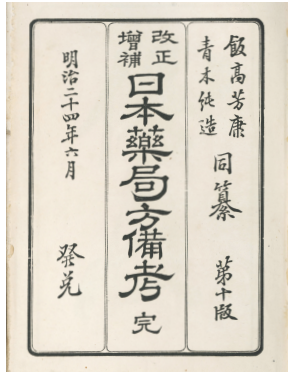 飯高芳康
青木純造
同纂
第十版
改正
增補
日本藥局方備考
完
明治二十四年六月
発兌